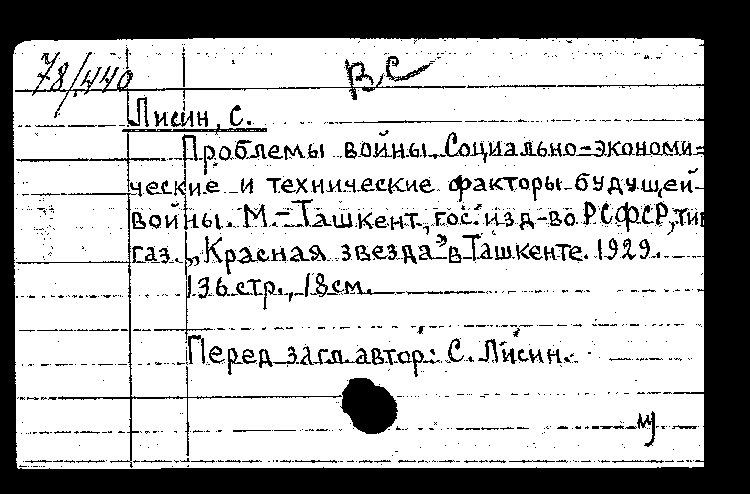 78/440
ВС
Лисин, С.
Проблемы войны. Социально-экономи-
ческие и технические факторы будущей
войны. М.-Ташкент, гос. изд-во РСФСР, тип
газ. „Красная звезда" в Ташкенте. 1929.
136 стр., 18 см.
Перед загл. автор: С. Лисин.